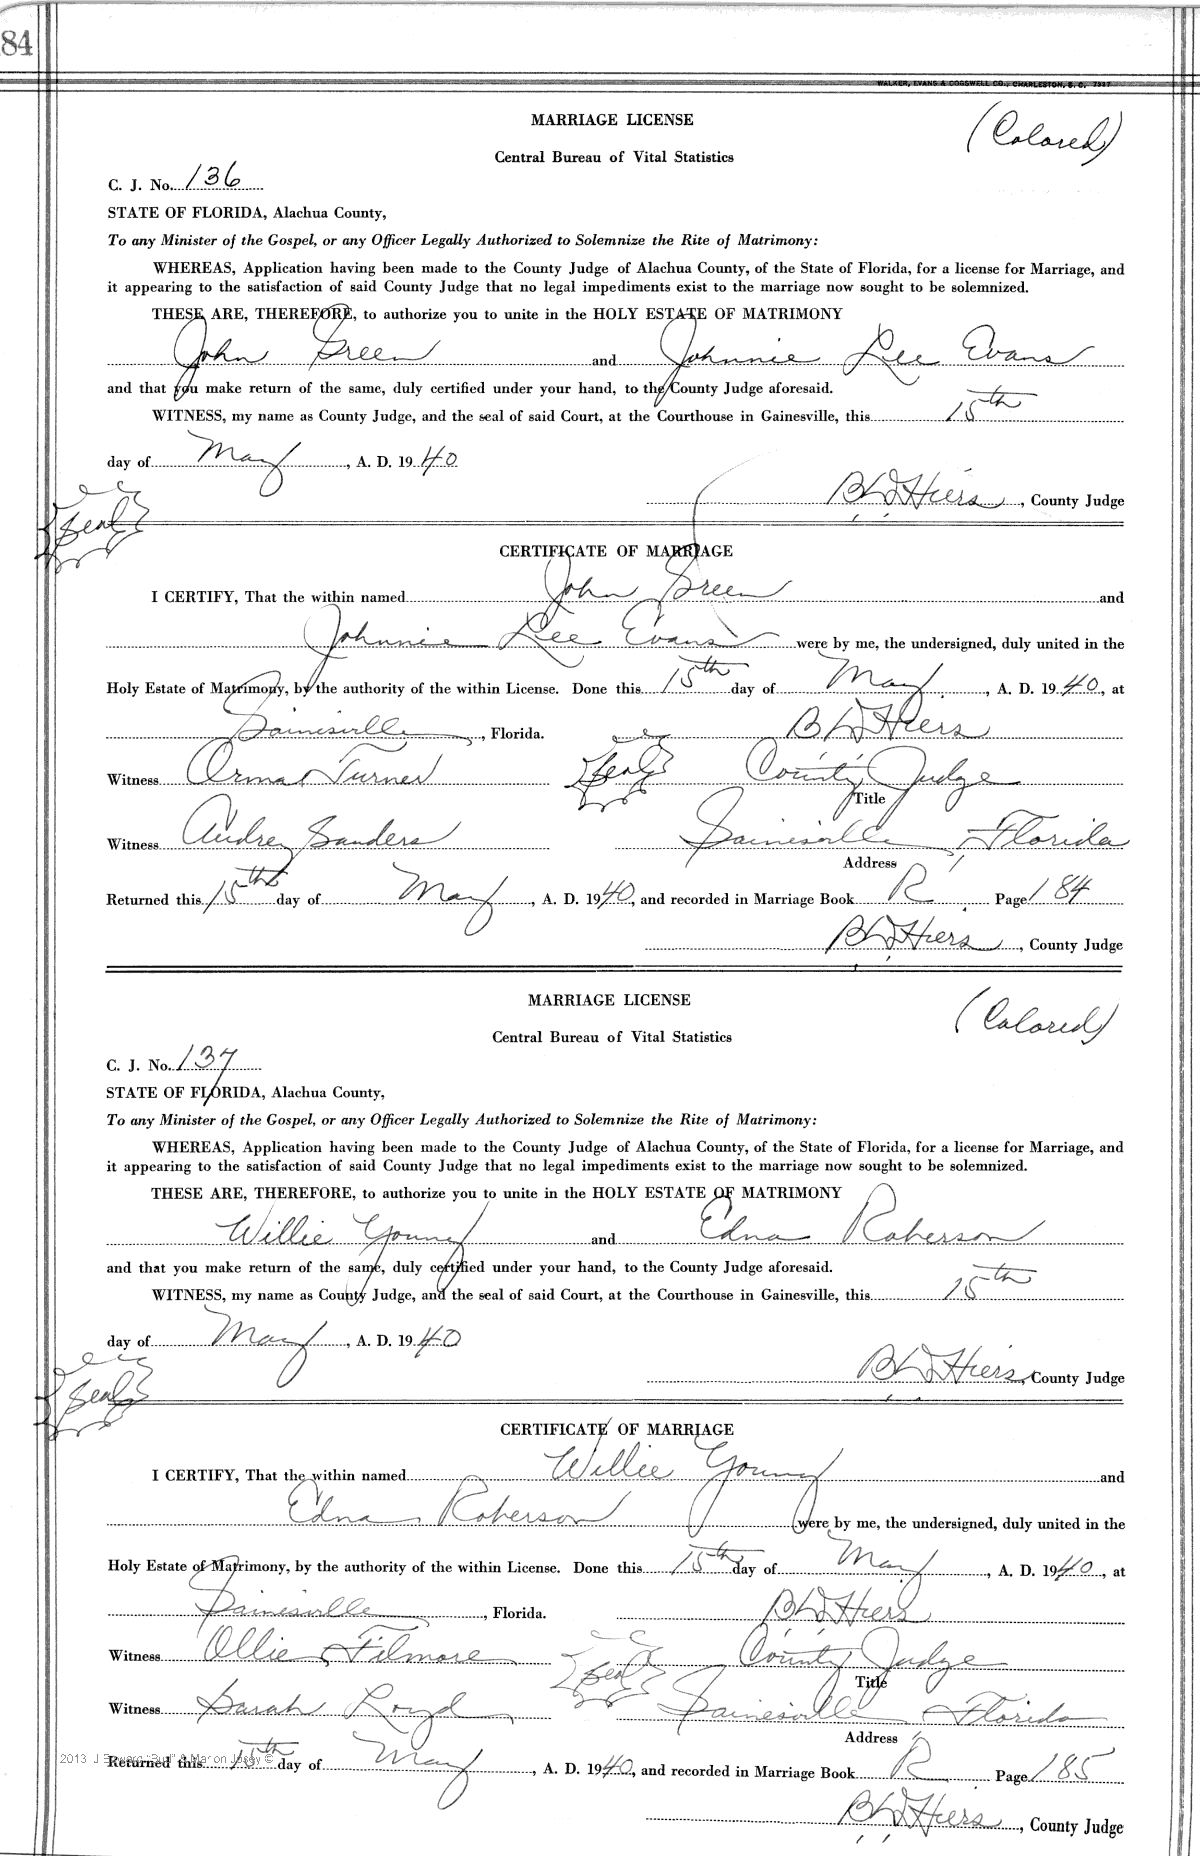 84
WALKER, EVANS & COGSWELL CO., CHARLESTON, S. C. 7937
MARRIAGE LICENSE
(Colored)
Central Bureau of Vital Statistics
C. J. No. 136
STATE OF FLORIDA, Alachua County,
To any Minister of the Gospel, or any Officer Legally Authorized to Solemnize the Rite of Matrimony:
WHEREAS, Application having been made to the County Judge of Alachua County, of the State of Florida, for a license for Marriage, and
it appearing to the satisfaction of said County Judge that no legal impediments exist to the marriage now sought to be solemnized.
THESE ARE, THEREFORE, to authorize you to unite in the HOLY ESTATE OF MATRIMONY
John Green and Johnnie Lee Evans
and that you make return of the same, duly certified under your hand, to the County Judge aforesaid.
WITNESS, my name as County Judge, and the seal of said Court, at the Courthouse in Gainesville, this 15th
day of May, A. D. 1940
BL Hiers, County Judge
Seal
CERTIFICATE OF MARRIAGE
I CERTIFY, That the within named John Green and
Johnnie Lee Evans were by me, the undersigned, duly united in the
Holy Estate of Matrimony, by the authority of the within License. Done this 15th day of May, A. D. 1940, at
Gainesville, Florida. BL Hiers
Witness Orma Turner Seal County Judge
Title
Witness Audrey Sanders Gainesville, Florida
Address
Returned this 15th day of May, A. D. 1940, and recorded in Marriage Book R Page 184
BL Hiers, County Judge
MARRIAGE LICENSE
(Colored)
Central Bureau of Vital Statistics
C. J. No. 137
STATE OF FLORIDA, Alachua County,
To any Minister of the Gospel, or any Officer Legally Authorized to Solemnize the Rite of Matrimony:
WHEREAS, Application having been made to the County Judge of Alachua County, of the State of Florida, for a license for Marriage, and
it appearing to the satisfaction of said County Judge that no legal impediments exist to the marriage now sought to be solemnized.
THESE ARE, THEREFORE, to authorize you to unite in the HOLY ESTATE OF MATRIMONY
Willie Young and Edna Roberson
and that you make return of the same, duly certified under your hand, to the County Judge aforesaid.
WITNESS, my name as County Judge, and the seal of said Court, at the Courthouse in Gainesville, this 15th
day of May, A. D. 1940
BL Hiers, County Judge
Seal
CERTIFICATE OF MARRIAGE
I CERTIFY, That the within named Willie Young and
Edna Roberson were by me, the undersigned, duly united in the
Holy Estate of Matrimony, by the authority of the within License. Done this 15th day of May, A. D. 1940, at
Gainesville, Florida. BL Hiers
Witness Ollie Filmore Seal County Judge
Title
Witness Sarah Loyd Gainesville, Florida
Address
2013 J Edward "Bud" & Marion Josey ©
Returned this 15th day of May, A. D. 1940, and recorded in Marriage Book R Page 185
BL Hiers, County Judge